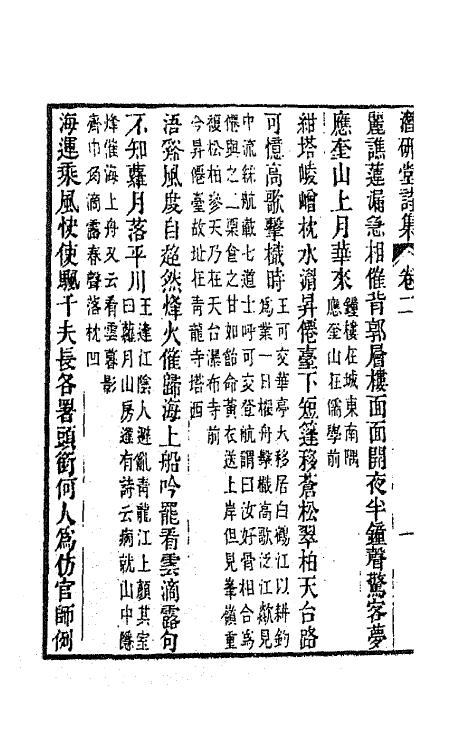 潛研堂詩集 卷二 一
麗譙蓮漏急相催背郭層樓面面開夜半鐘聲驚客夢
應奎山上月華來 鐘樓在城東南隅
應奎山在儒學前
紺塔崚嶒枕水湄昇僊臺下短篷移蒼松翠柏天台路
可憶高歌擊檝時 王可交華亭人移居白鶴江以耕釣
為業一日櫂舟擊檝高歌泛江歘見
中流綵舫載七道士呼可交登舫謂曰汝好骨相合為
僊與之二栗食之甘如飴命黃衣送上岸但見峯嶺重
複松柏參天乃在天台瀑布寺前
今昇僊臺故址在青龍寺塔西
浯谿風度自超然烽火催歸海上船吟罷看雲滴露句
不知蘿月落平川 王逢江陰人避亂青龍江上顏其室
曰蘿月山房邐有詩云病就山中隱
烽催海上舟又云看雲暮影
齊巾舄滴露春聲落枕凹
海運乘風快使颿千夫長各署頭銜何人為仿官師例